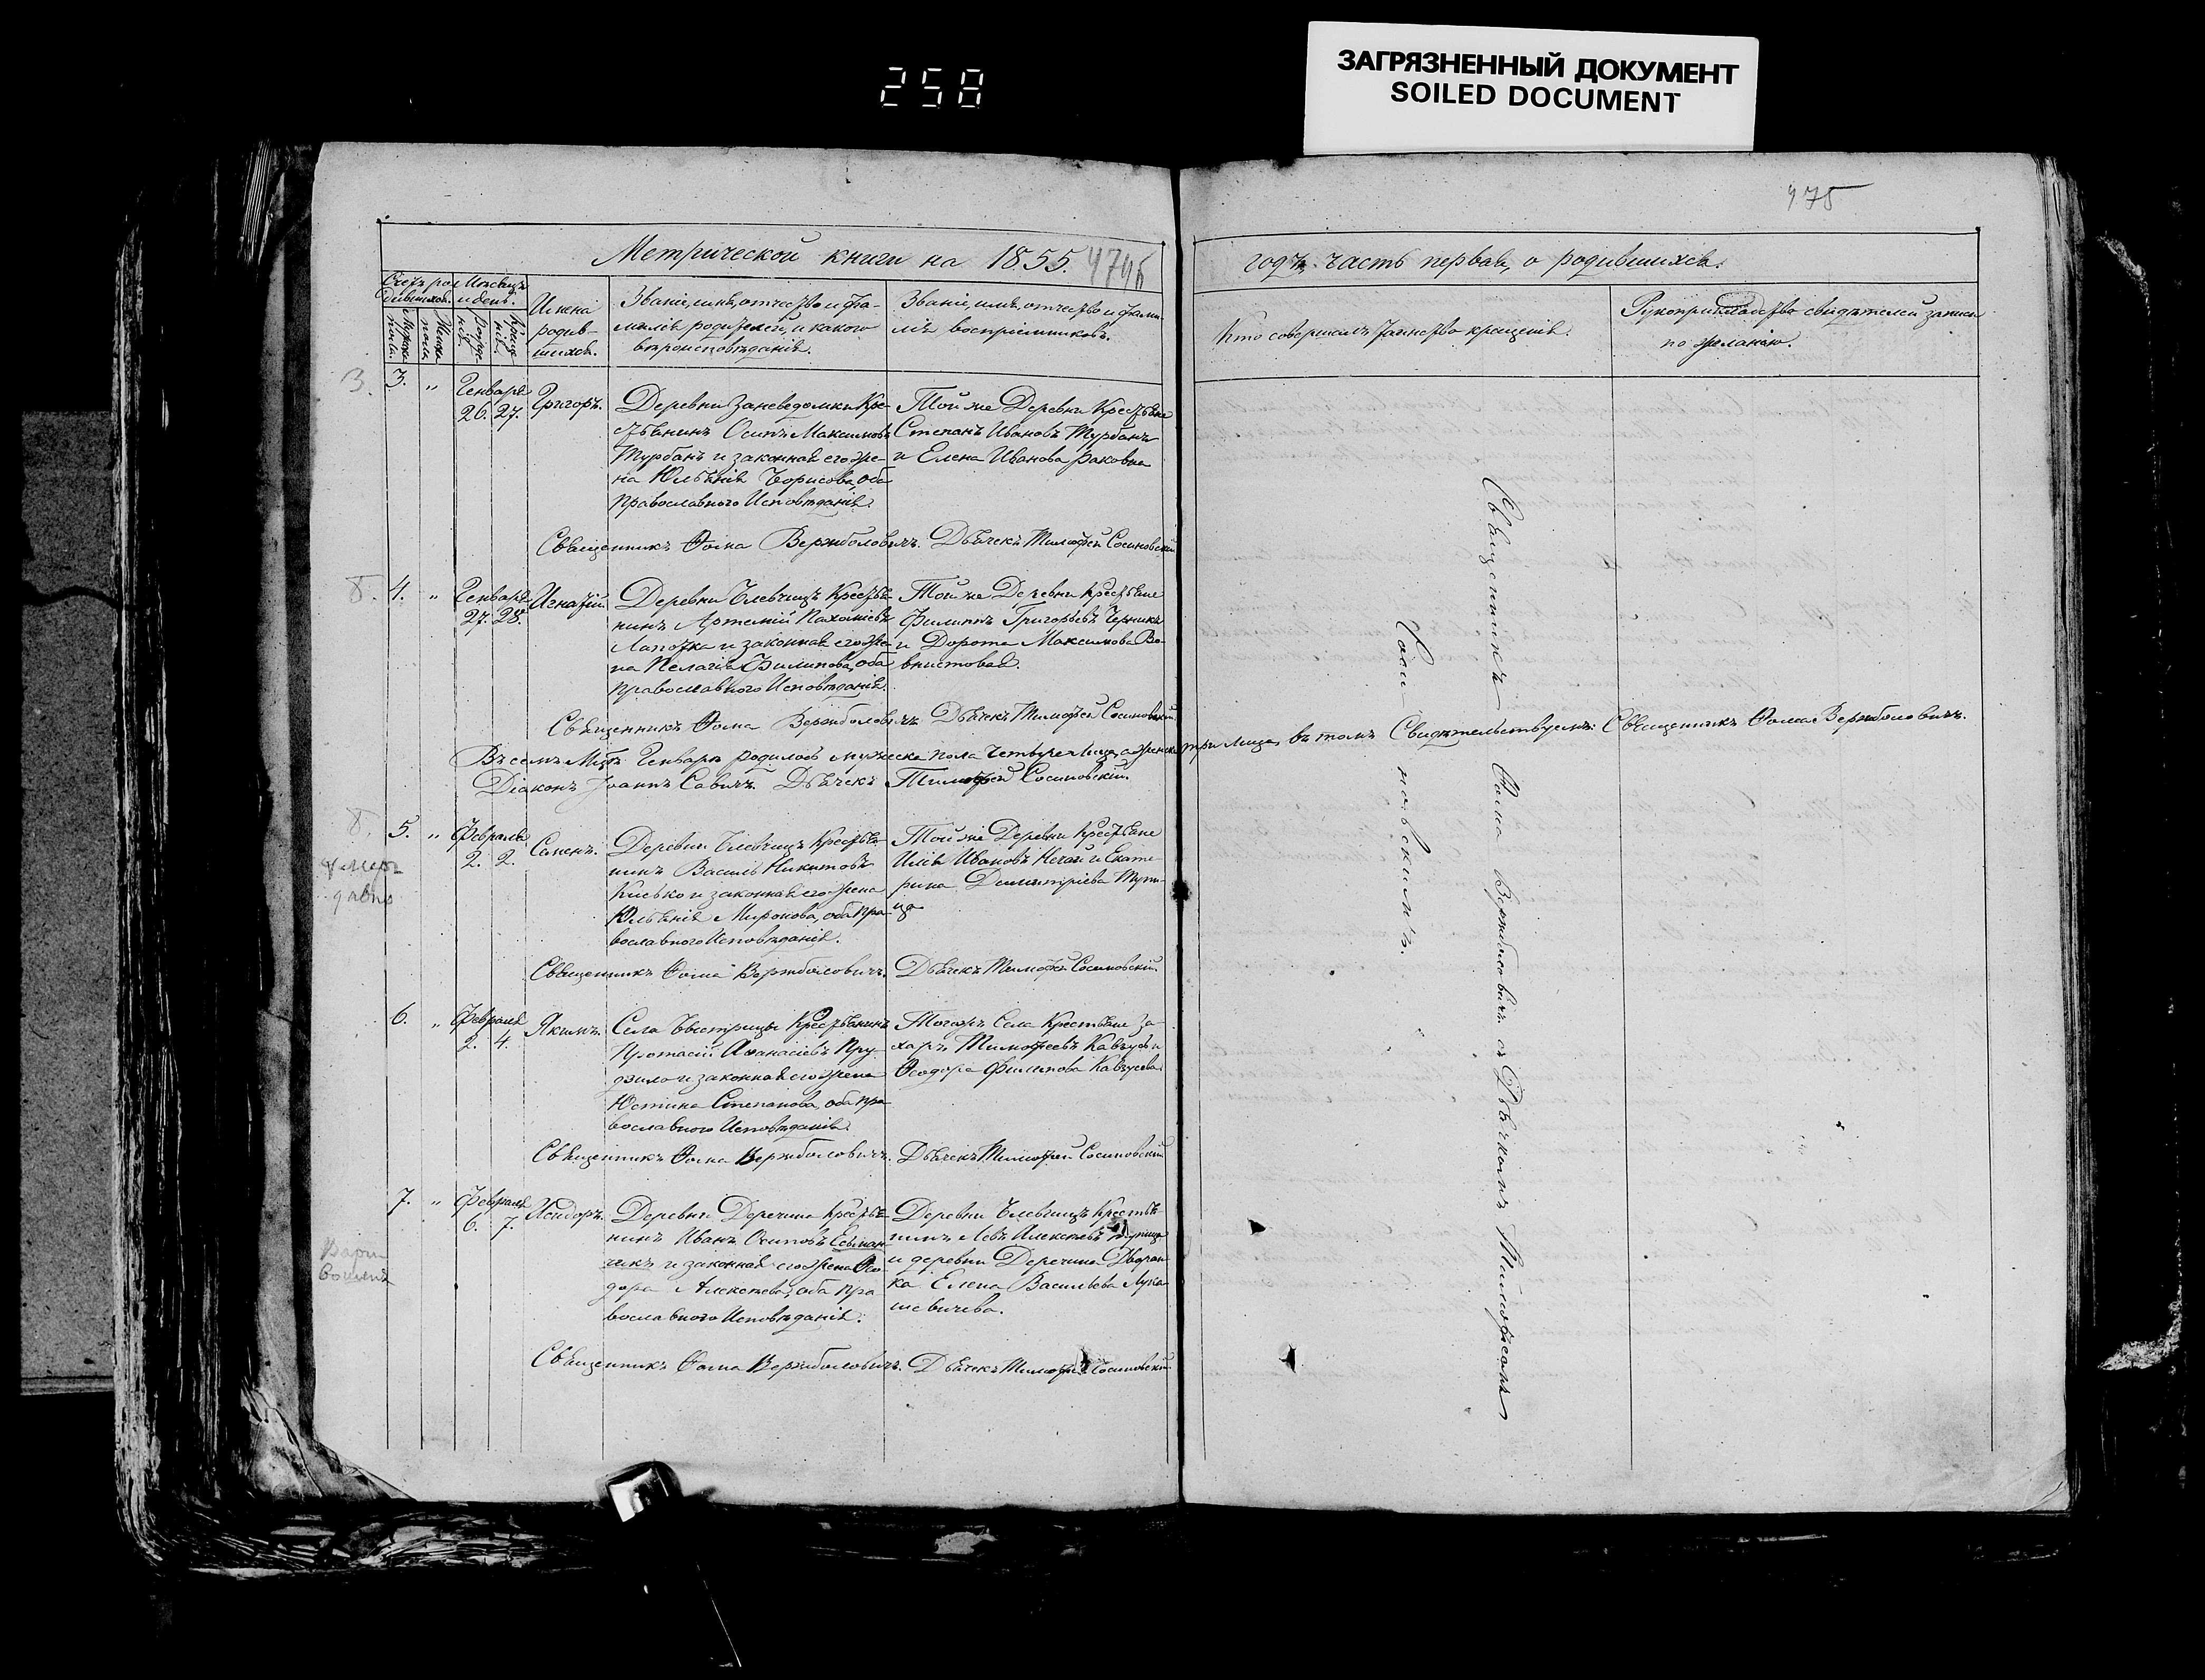 258
ЗАГРЯЗНЕННЫЙ ДОКУМЕНТ
SOILED DOCUMENT
475
Метрической книги на 1855.
годъ часть первая, о родившихся.
Счетъ родившихся.
Мѣсяцъ и день.
Мужеска пола
Женска пола
рожденія
крещенія
Имена
родив-
шихся.
Званіе, имя, отчество и фа-
милія родителей, и какого
вѣроисповѣданія.
Званіе, имя, отчество и фами-
лія воспріемниковъ.
Кто совершалъ таинство крещенія.
Рукоприкладство свидѣтелей записи
по желанію.
3. 3. " Генваря 26. 27. Григоръ.
Деревни Заневедомки Кре-
стьянинъ Осипъ Максимовъ
Турбанъ и законная его же-
на Юльянія Борисова, оба
православного Исповѣданія.
Той же Деревни Крестьяне
Степанъ Ивановъ Турбанъ
и Елена Иванова
Священникъ Ѳома Вержболовичъ. Дьячекъ Тимофей Сосиновскій
4. " Генваря 27. 28. Игнатій
Деревни Блевчицъ Крестья-
нинъ Артемій Пахоміевъ
Лапотка и законная его же-
на Пелагія Филипова, оба
православного Исповѣданія.
Той же Деревни Крестьяне
Филиппъ Григорьевъ Черникъ
и Дорота Максимова Во-
внистовая.
Священникъ Ѳома Вержболовичъ Дьячекъ Тимофей Сосиновскій
Въ семъ Мцѣ Генварѣ родилось мужеска пола четыре лица, а женска три лица, въ томъ Свидѣтельствуемъ: Священникъ Ѳома Вержболовичъ.
Діаконъ Іоаннъ Савичъ. Дьячекъ Тимофей Сосиновскій.
5. " Февраля 2. 2. Семенъ.
умеръ
давно
Деревни Блевчицъ Крестья-
нинъ Василь Никитовъ
Кисько и законная его жена
Юльянія Миронова, оба пра-
вославного Исповѣданія.
Той же Деревни Крестьяне
Илія Ивановъ Нечай и Екате-
рина Димитріева Тупи-
ца
Священникъ Ѳома Вержболовичъ. Дьячекъ Тимофей Сосиновскій.
6. " Февраля 2. 4. Якимъ.
Села Быстрицы Крестьянинъ
Протасій Аѳанасіевъ Пру-
дило и законная его жена
Юстина Степанова, оба пра-
вославного Исповѣданія.
Тогожъ Села Крестьяне За-
харъ Тимофеевъ Кавзусь и
Ѳеодора Филипова Кавзусева.
Священникъ Ѳома Вержболовичъ. Дьячекъ Тимофей Сосиновскій
7. " Февраля 6. 7. Исидоръ.
Деревни Деречина Крестья-
нинъ Иванъ Осиповъ
и законная его жена Ѳео-
дора Алексѣева, оба пра-
вославного Исповѣданія.
Деревни Блевчицъ Крестья-
нинъ Левъ Алексѣевъ Тупица
и деревни Деречина Дворян-
ка Елена Васильева Лука-
шевичева.
Священникъ Ѳома Вержболовичъ. Дьячекъ Тимофей Сосиновскій
Священникъ Ѳома Вержболовичъ съ Дьячкомъ Тимофеемъ
Сосиновскимъ.